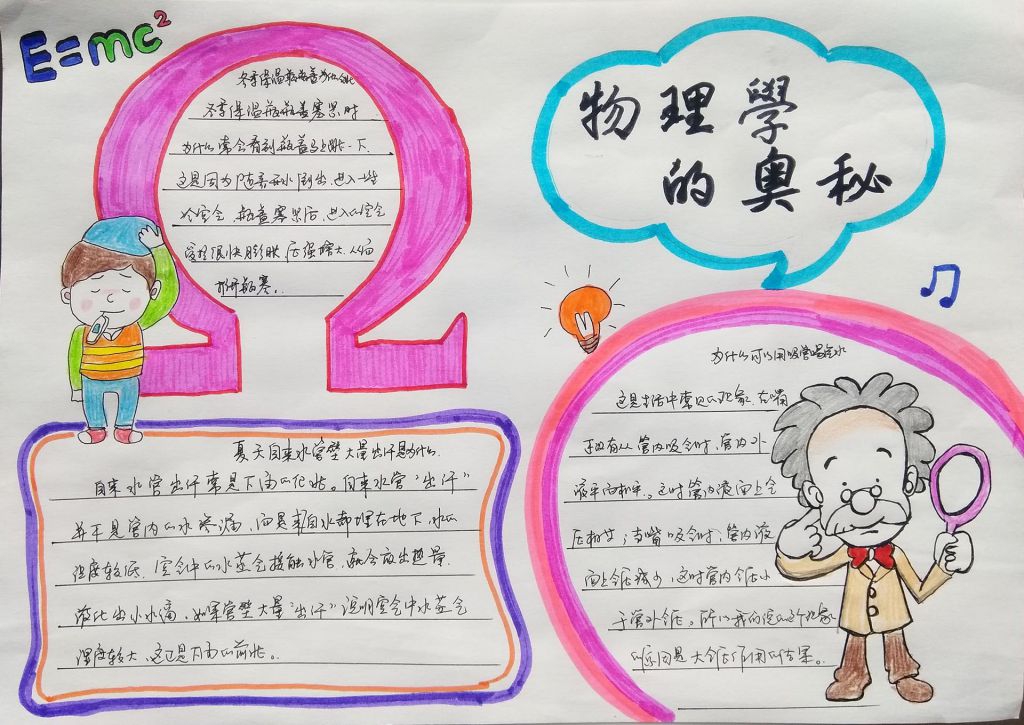 E=mc²
物理學
的奥秘
冬季保温瓶瓶盖为什么跳
冬季保温瓶瓶盖塞紧时
为什么常会看到瓶盖马上跳一下
这是因为随着水倒出，进入一些
冷空气，瓶盖塞紧后，进入的空气
受热很快膨胀压强增大，从而
推开瓶塞。
夏天自来水管壁大量出汗是为什么
自来水管出汗常是下雨的征兆。自来水管“出汗”
并不是管内的水渗漏，而是来自水都埋在地下，水的
温度较低，空气中的水蒸气接触水管，就会放出热量
液化出小水滴，如果管壁大量“出汗”说明空气中水蒸气
湿度较大，这正是下雨的前兆。
为什么可以用吸管喝汽水
这是生活中常见的现象，在嘴
没有从管内吸气时，管内外
液平面相平。这时管内液面上气
压相等；当嘴吸气时，管内液
面上气压减少，这时管内气压小
于管外气压。所以我们说的这个现象
的原因是大气压作用的结果。